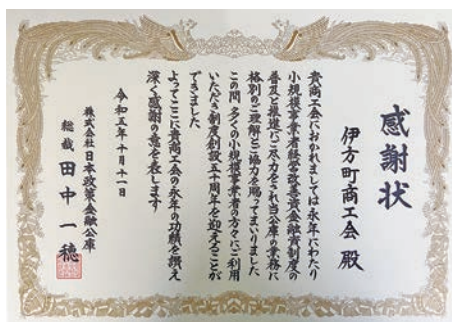 感謝状
伊方町商工会 殿
貴商工会におかれましては永年にわたり
小規模事業者経営改善資金融資制度の
普及と推進にご尽力をされ当公庫の業務に
格別のご理解とご協力を賜ってまいりました
この間 多くの小規模事業者の方々にご利用
いただき制度創設五十周年を迎えることが
できました
よってここに貴商工会の永年の功績を讃え
深く感謝の意を表します
令和五年十月十一日
株式会社日本政策金融公庫
総裁 田中一穂